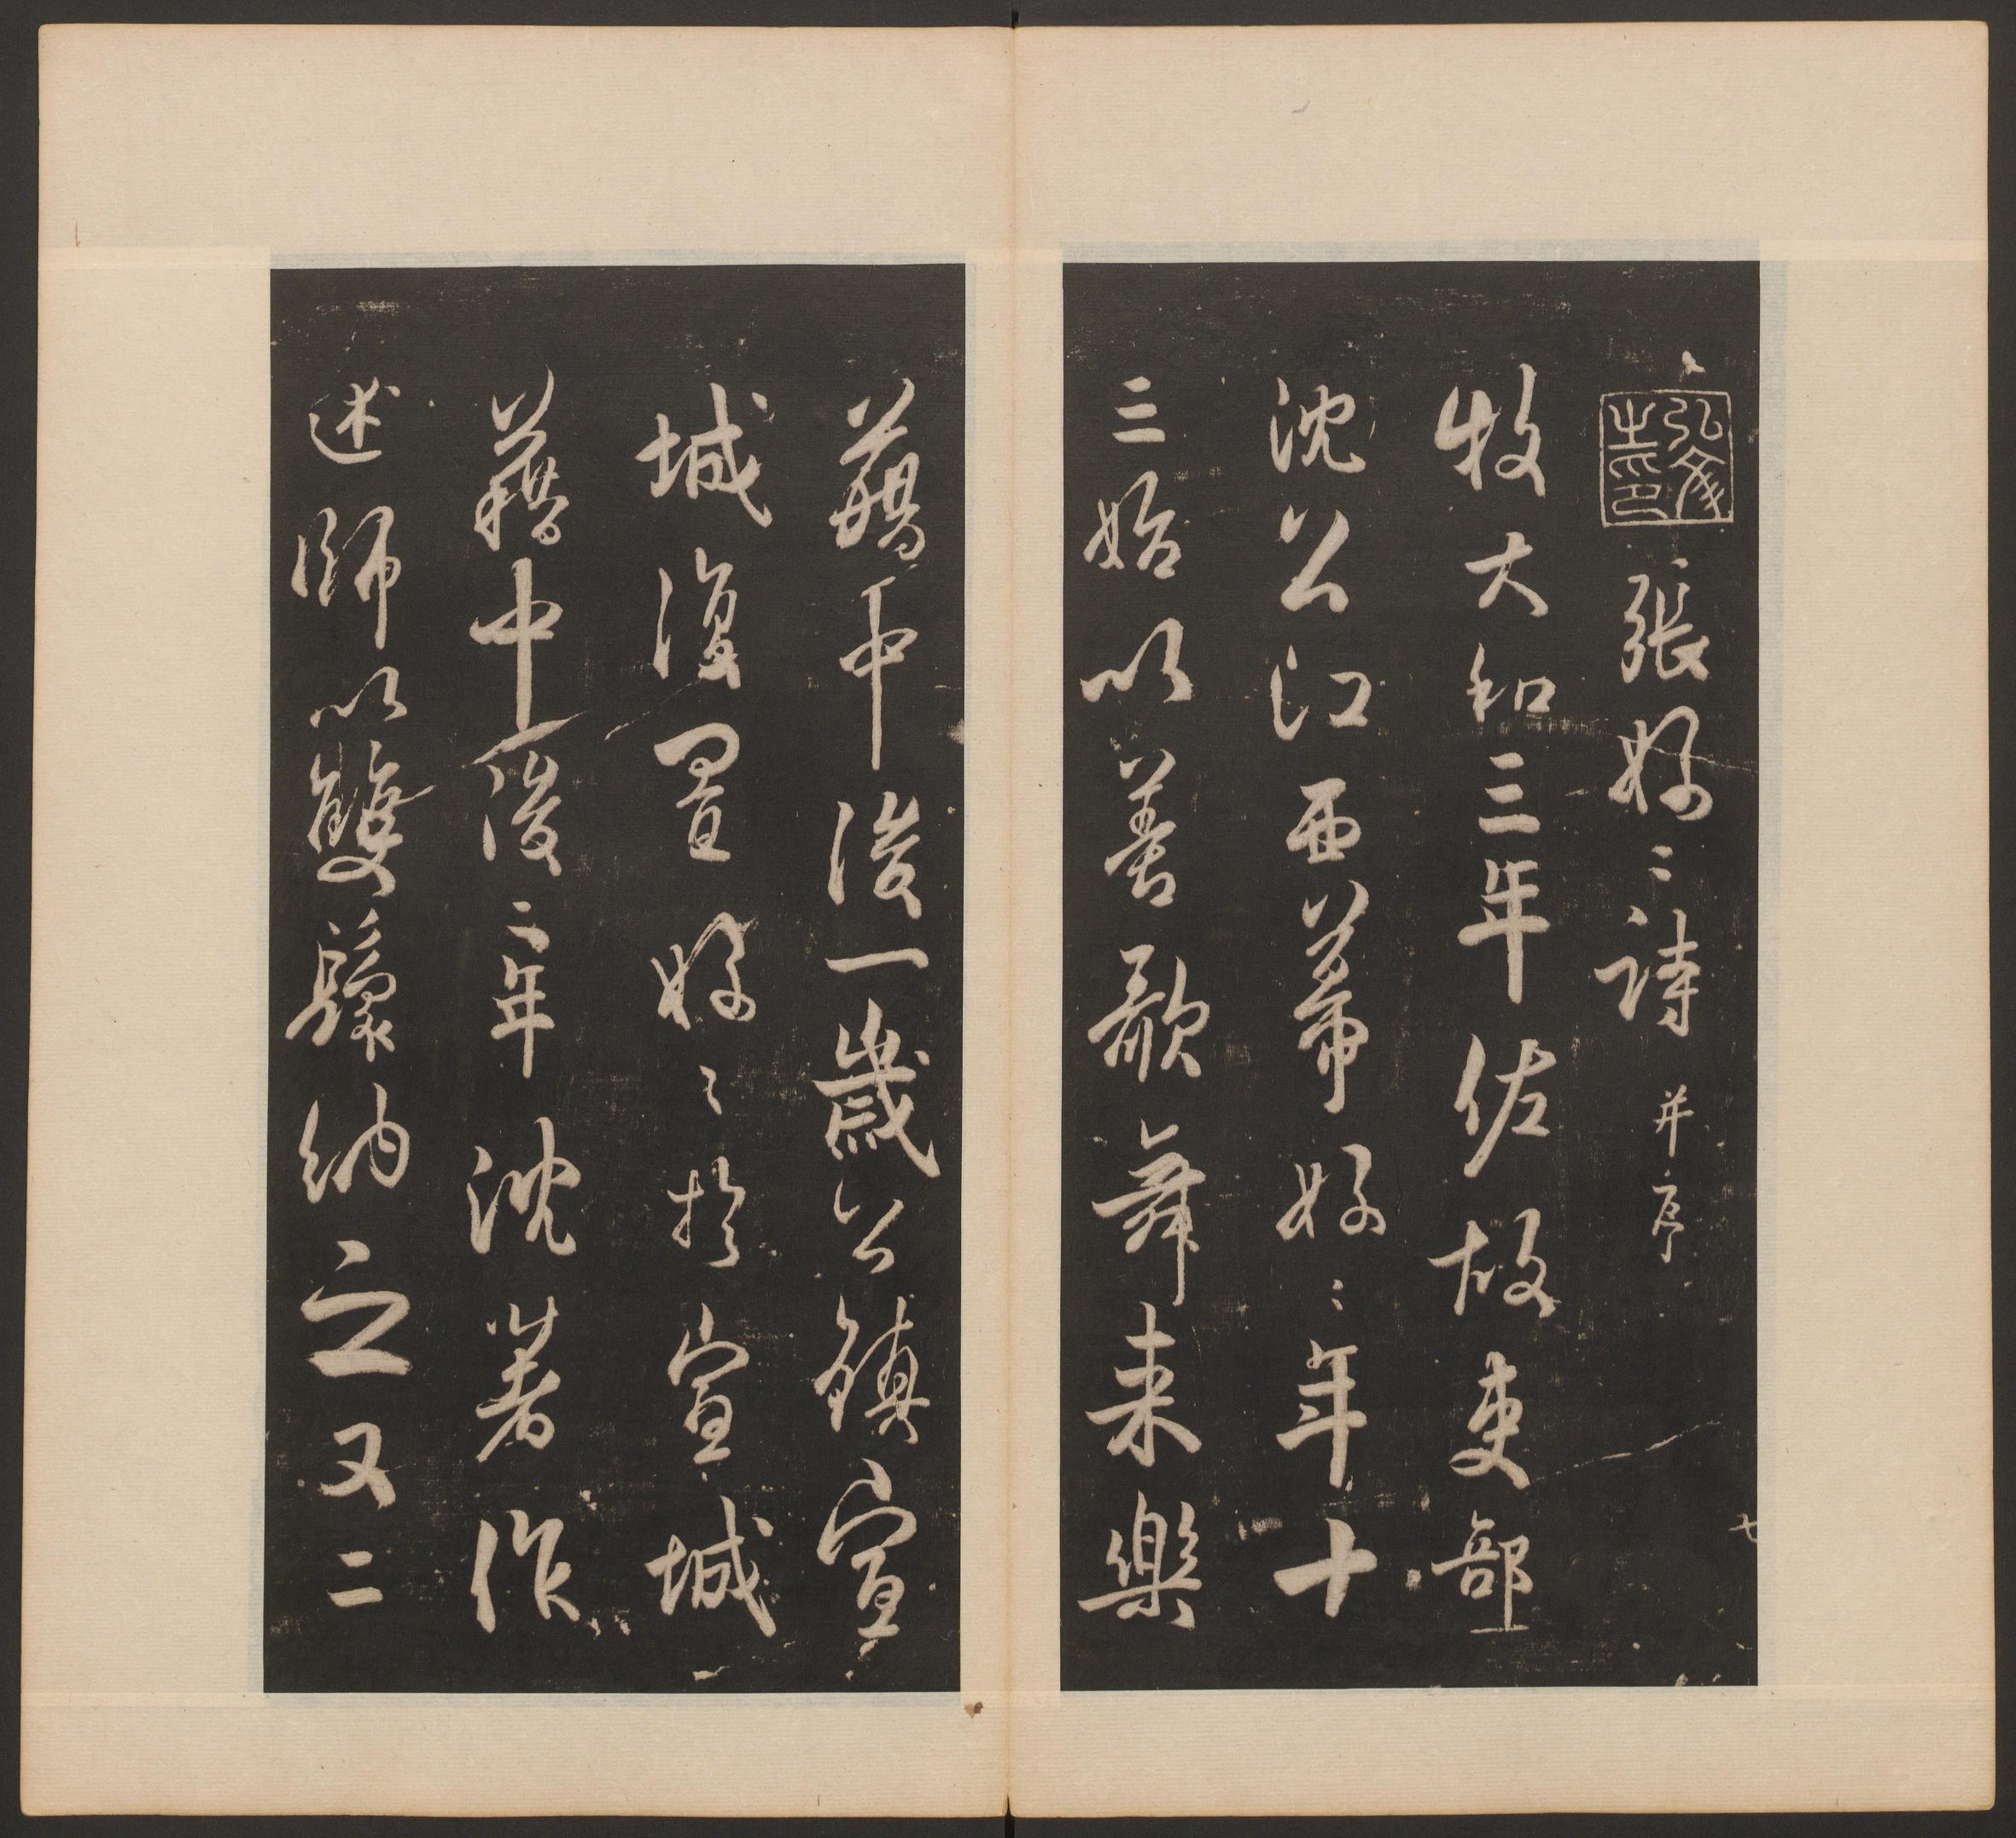 弘文之印
張好〻詩 并序
牧大和三年佐故吏部
沈公江西幕好〻年十
三始以善歌舞来樂
籍中後一歲公鎮宣
城復置好〻於宣城
籍中後二年沈著作
述師以雙鬟納之又二